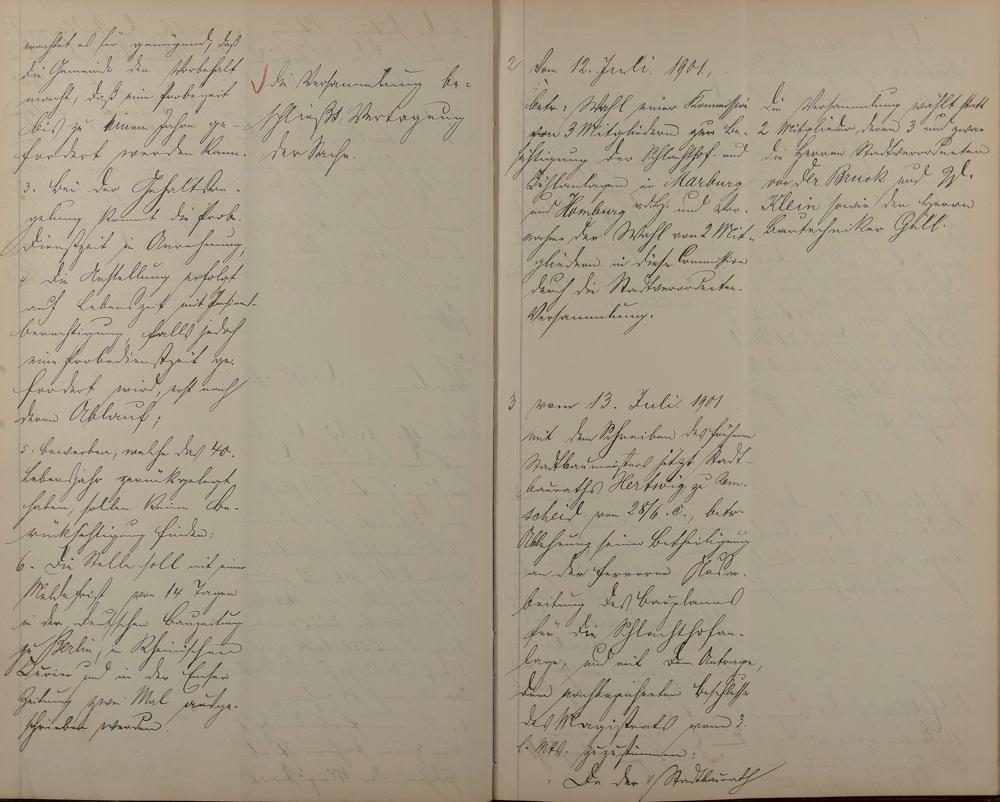 erachtet es für genügend, daß
die Gemeinde den Vorbehalt
macht, daß eine Probezeit
bis zu einem Jahre ge-
fordert werden kann.
3. Bei der Gehaltsre-
gelung kommt die Probe-
dienstzeit in Anrechnung,
4. Die Anstellung erfolgt
auf Lebenszeit mit Pensions-
berechtigung, falls jedoch
eine Probedienstzeit ge-
fordert wird, erst nach
deren Ablauf;
5. Bewerber, welche das 40.
Lebensjahr zurückgelegt
haben, sollen keine Be-
rücksichtigung finden;
6. Die Stelle soll mit einer
Meldefrist von 14 Tagen
in der Deutschen Bauzeitung
zu Berlin, im Rheinischen
Kurier und in der Emser
Zeitung zwei Mal ausge-
schrieben werden.
die Versammlung be-
schließt Vertagung
der Sache.
2 Vom 12. Juli 1901,
betr: Wahl einer Kommission
von 3 Mitgliedern zur Be-
sichtigung der Schlachthof- und
Kühlanlagen in Marburg
und Homburg v.d.H. und Vor-
nahme der Wahl von 2 Mit-
gliedern in diese Commission
durch die Stadtverordneten-
Versammlung.
die Versammlung wählt statt
2 Mitglieder deren 3 und zwar
die Herren Stadtverordneten
von der Bruck und
Klein sowie den Herrn
Bautechniker Gell.
3 vom 13. Juli 1901
mit dem Schreiben des früheren
Stadtbaumeisters jetzt Stadt-
bauraths Hertwig zu Rem-
scheid vom 28/6. c., betr.
Ablehnung seiner Betheiligung
an der ferneren Ausar-
beitung des Bauplanes
für die Schlachthofan-
lage, und mit dem Antrage,
dem nachbezeichneten Beschlusse
des Magistrats vom 3.
l. Mts. zuzustimmen:
Da der Stadtbaurath